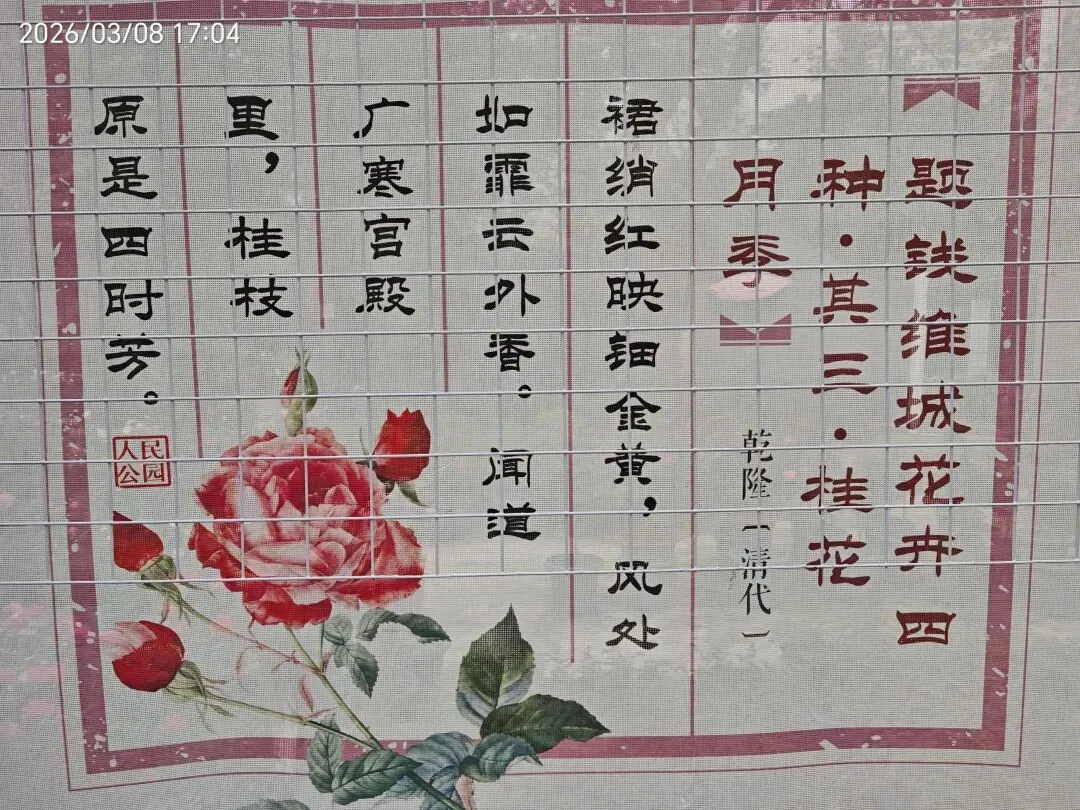 2026/03/08 17:04
题钱维城花卉四
种·其三·桂花
月季
乾隆〔清代〕
裙绡红映钿金黄，风处
如霏云外香。闻道
广寒宫殿
里，桂枝
原是四时芳。
人民
公园